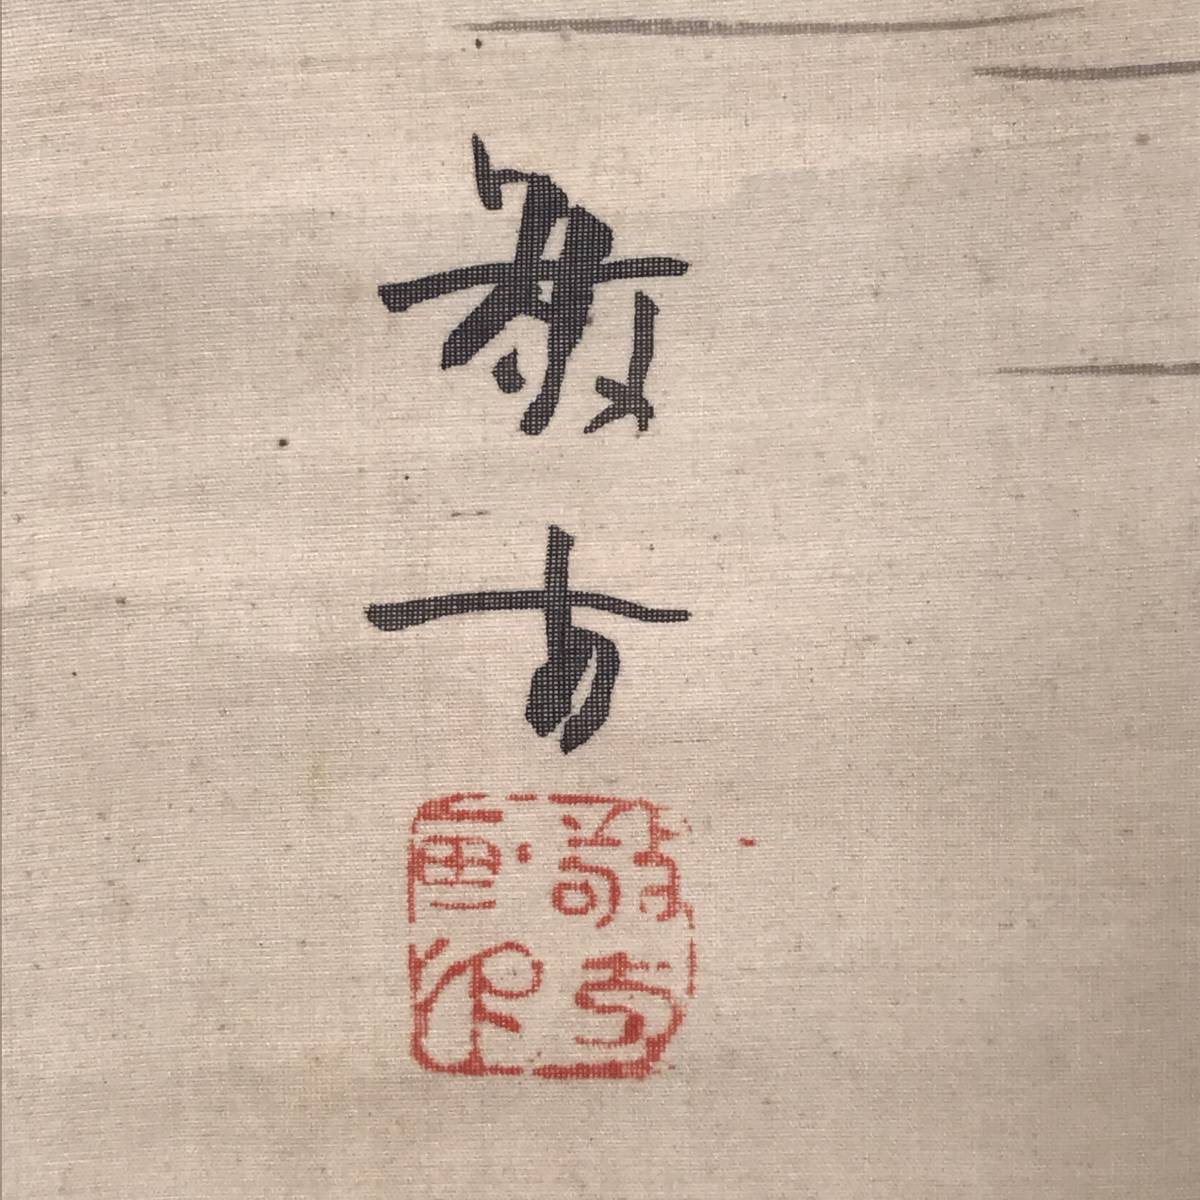 敬方
敬方
画印